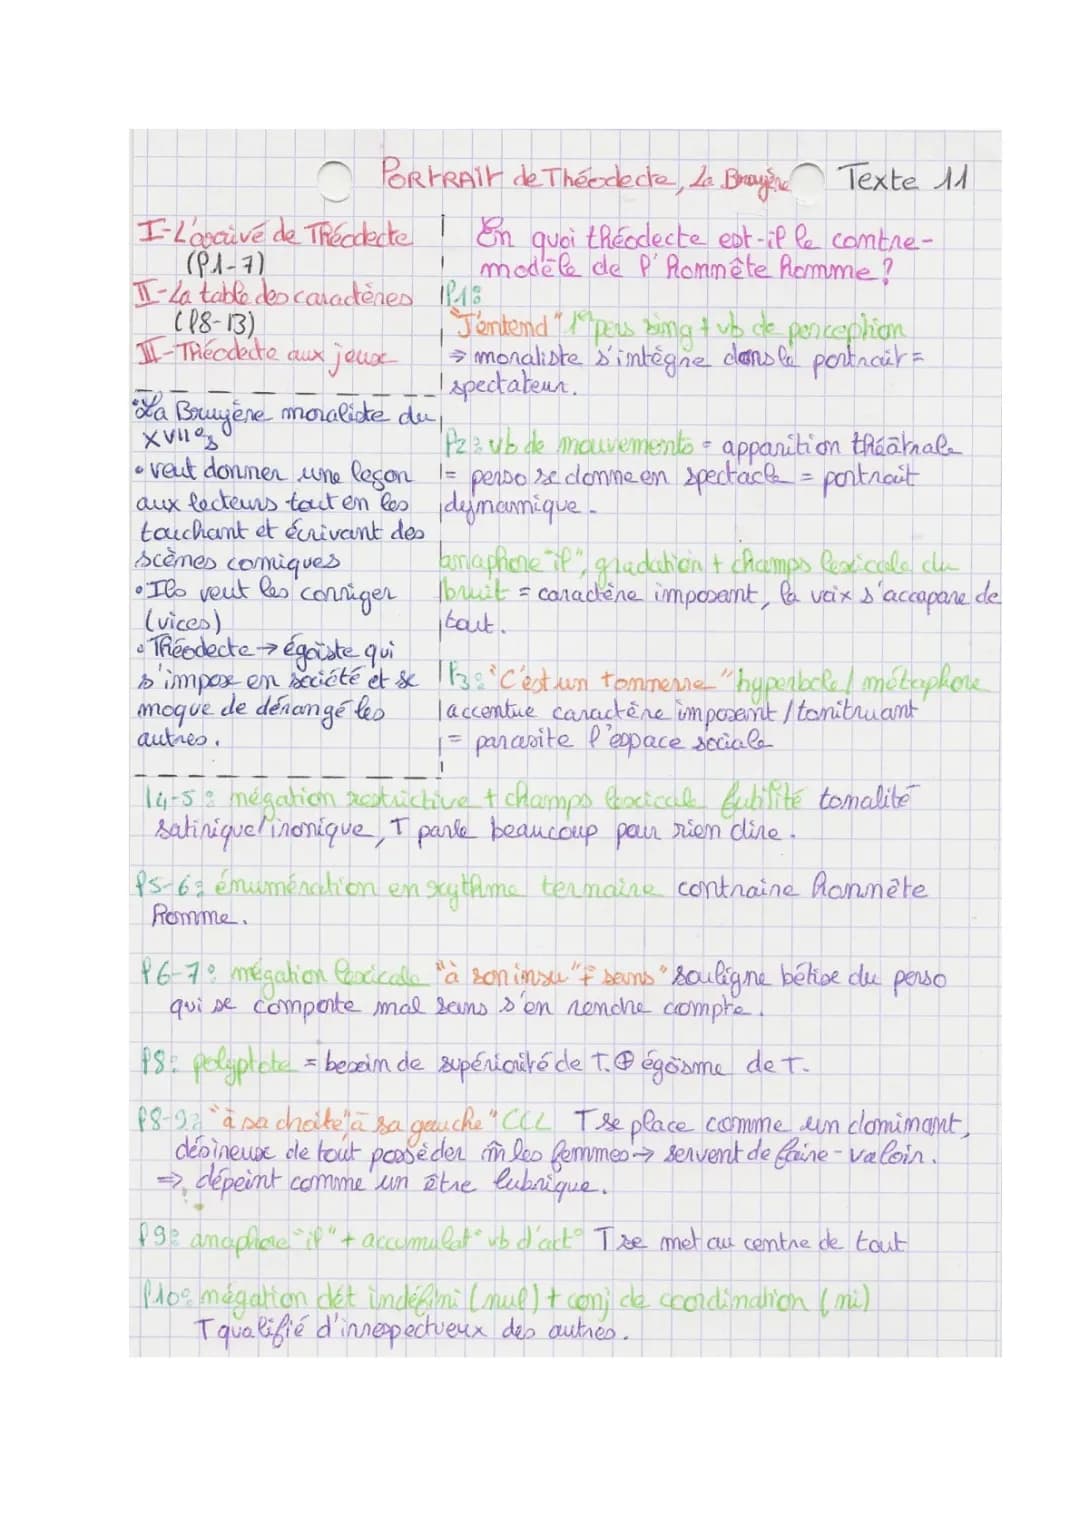 PORTRAIT de Théodecte, La Bruyère Texte 11
I-L'arrivé de Théodecte
(l1-7)
II-La table des caractères
(l8-13)
III-Théodecte aux jeux
•La Bruyère moraliste du
XVII°s
• veut donner une leçon
aux lecteurs tout en les
touchant et écrivant des
scènes comiques
• Ils veut les corriger
(vices)
• Théodecte → égoïste qui
s'impose en société et se
moque de dérangé les
autres.
En quoi théodecte est-il le contre-
modèle de l'Honnête homme ?
l1:
"J'entend" 1re pers sing + vb de perception
⇒ moraliste s'intègre dans le portrait =
spectateur.
l2: vb de mouvements = apparition théâtrale
= perso se donne en spectacle = portrait
dynamique.
anaphore "il", gradation + champs lexicale du
bruit = caractère imposant, la voix s'accapare de
tout.
l3: "C'est un tonnerre" hyperbole/métaphore
accentue caractère imposant/tonitruant
= parasite l'espace sociale
l4-5: négation restrictive + champs lexicale futilité tonalité
satirique/ironique, T parle beaucoup pour rien dire.
l5-6: énumération en rythme ternaire contraire honnête
homme.
l6-7: négation lexicale "à son insu" "sans" souligne bêtise du perso
qui se comporte mal sans s'en rendre compte.
l8: polyptote = besoin de supériorité de T. ⊕ égoïsme de T.
l8-9: "à sa droite" "à sa gauche" CCL T se place comme un dominant,
désireux de tout posséder m̂ les femmes → servent de faire-valoir.
⇒ dépeint comme un être lubrique.
l9: anaphore "il" + accumulat° vb d'act° T se met au centre de tout
l10: négation dét indéfini (nul) + conj de coordination (ni)
T qualifié d'irrespectueux des autres.